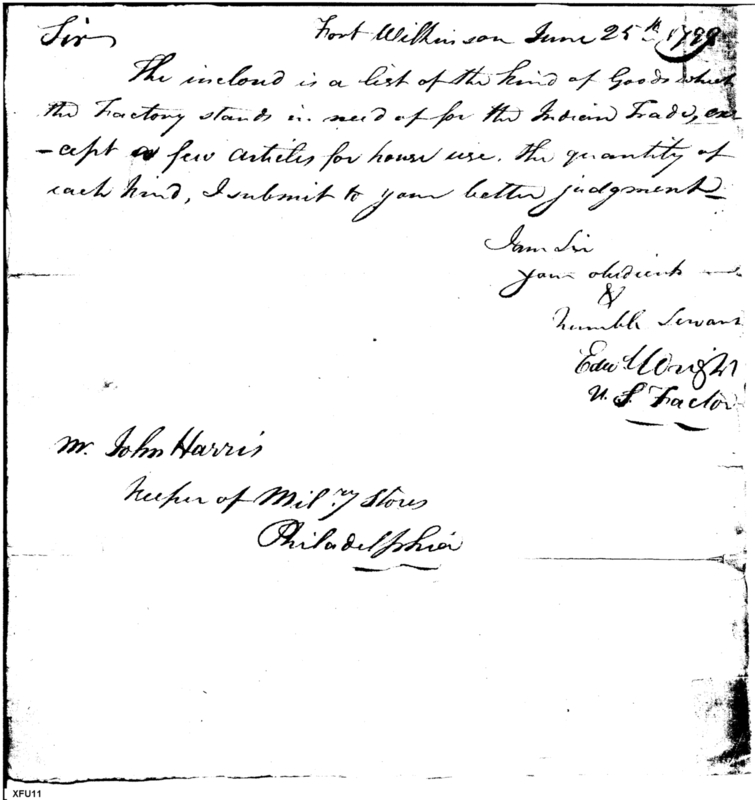 Sir Fort Wilkinson June 25th 1799
The inclosd is a list of the kind of Goods which
the Factory stands in need of for the Indian Trade, ex
-cept a few articles for house use. The quantity of
each kind, I submit to your better judgment
I am Sir
your obedient
&
humble Servant
Edwd Wright
U. S. Factor
Mr. John Harris
Keeper of Mil.ry Stores
Philadelphia
XFU11